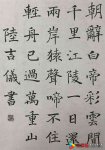 朝辭白帝彩雲間
千里江陵一日還
兩岸猿聲啼不住
輕舟已過萬重山
陸吉儀書